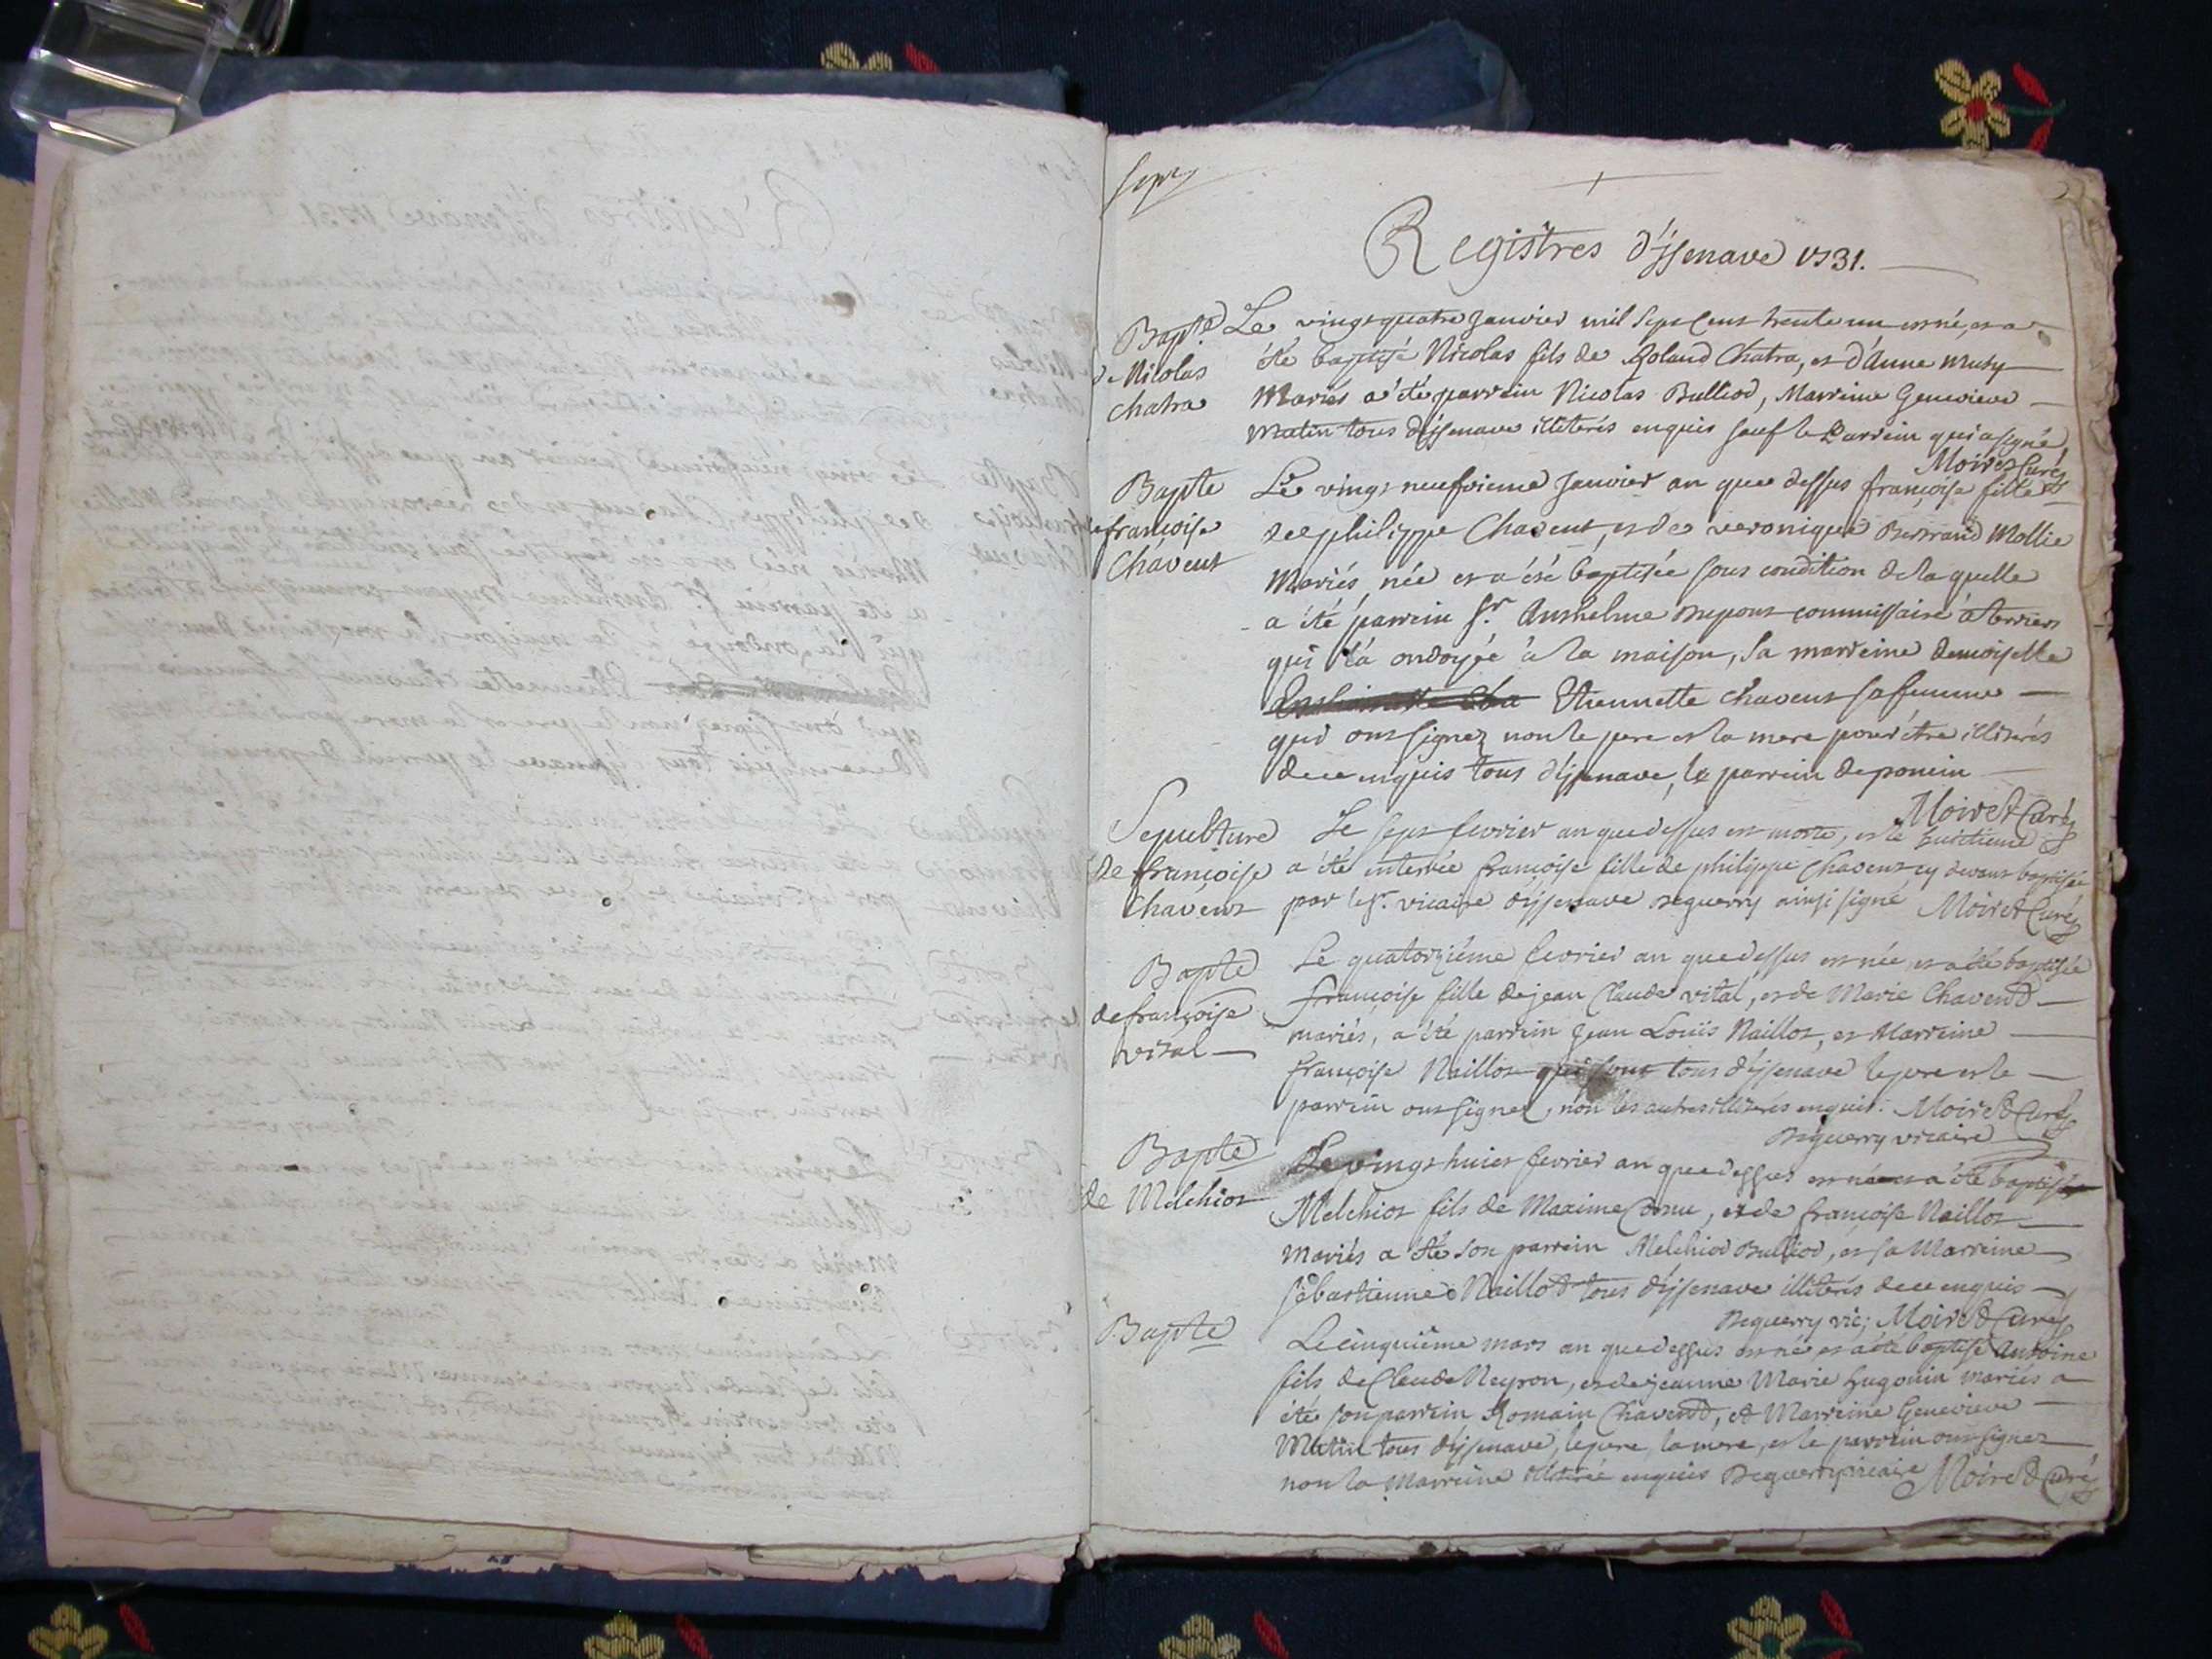 Registres d'issenave 1731.
Bapt.e
de Nicolas
chatra
Le vingt quatre janvier mil sept cens trente un est né, et a
été baptisé Nicolas fils de Roland Chatra, et d'Anne Musy
Mariés a été parrein Nicolas Bulliod, Marreine Genevieve
Matin tous d'issenave illiterés enquis sauf le Parrein qui a signé
Moiret Curé
Bapte
de françoise
Chavent
Le vingt neufvieme janvier an que dessus françoise fille
de philippe Chavent, et de veronique Bertrand Mollie
Mariés, née et a été baptisée sous condition de laquelle
a été parrein Sr. Anthelme Dupont commissaire à terriers
qui l'a ondoyée à la maison, sa marreine demoiselle
Etiennette Chavent sa femme
qui ont signez non le pere et la mere pour étre illiterés
de ce enquis tous d'issenave, le parrein de poncin
Moiret Curé
Sepulture
de françoise
Chavent
Le sept fevrier an que dessus est morte, et le huitieme
a été enterrée françoise fille de philippe Chavent cy devant baptisée
par le sr. vicaire d'issenave Deguerry ainsi signé Moiret Curé
Bapte
de françoise
vital
Le quatorziéme fevrier an que dessus est née, et a été baptisée
françoise fille de jean Claude vital, et de Marie Chavend
mariés, a été parrein jean Louïs Naillot, et Marreine
françoise Naillot qui sont tous d'issenave le pere et le
parrein ont signez, non les autres illiterés enquis. Moiret Curé
Deguerry vicaire
Bapte
de Melchiot
Le vingt huict fevrier an que dessus est né et a été baptisé
Melchiot fils de Maxime Cornu, et de françoise Naillot
Mariés a été son parrein Melchiod Bulliod, et sa Marreine
sébastienne Naillod tous d'issenave illiterés de ce enquis
Deguerry vic; Moiret Curé
Bapte
Le cinquiéme mars an que dessus est né et a été baptisé Antoine
fils de Claude Neyron, et de jeanne Marie hugonin mariés a
été son parrein Romain Chavend, et Marreine Genevieve
Matin tous d'issenave, le pere, la mere, et le parrein ont signez
non la Marreine illiterée enquis Deguerry vicaire Moiret Curé